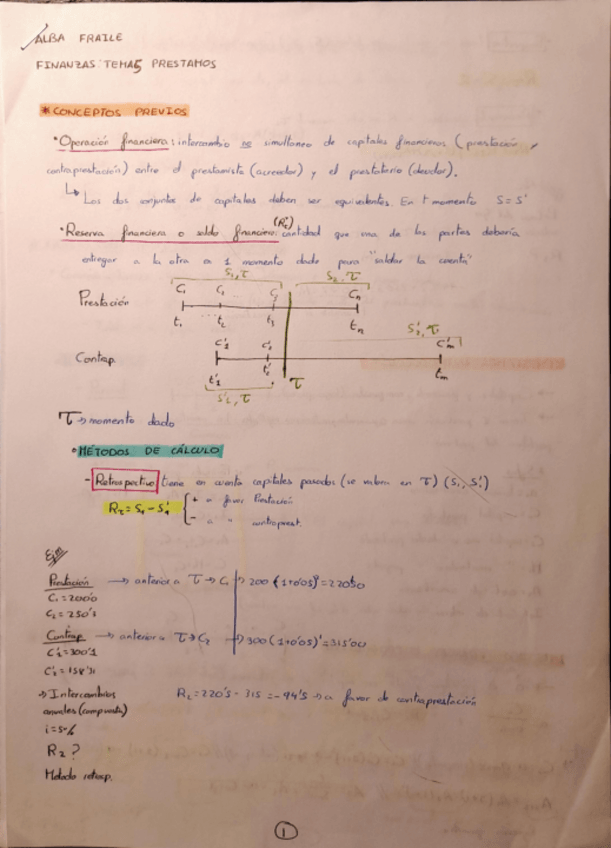 ALBA FRAILE
FINANZAS: TEMA5 PRESTAMOS
* CONCEPTOS PREVIOS
• Operación financiera: intercambio no simultaneo de capitales financieros (prestación y
contraprestación) entre el prestamista (acreedor) y el prestatario (deudor).
↳ Los dos conjuntos de capitales deben ser equivalentes. En t momento S = S'
• Reserva financiera o saldo financiero: (Rτ) cantidad que una de las partes debería
entregar a la otra en 1 momento dado para "saldar la cuenta"
S₁,τ S₂,τ
Prestación C₁ C₂ C₃ Cn
t₁ ... t₂ t₃ tn
S'₂,τ
Contrap C'₁ C'₂ C'm
t'₁ t'₂ τ tm
S'₁,τ
τ → momento dado
• MÉTODOS DE CÁLCULO
- Retrospectivo tiene en cuenta capitales pasados (se valora en τ) (S₁, S₁')
Rτ = S₁ - S'₁ { + a favor Prestación
- a " contraprest.
Ejm
Prestación → anterior a τ → C₁ → 200 (1+0'05)² = 220'50
C₁ = 200'0
C₂ = 250'3
Contrap → anterior a τ → C₂ → 300 (1+0'05)¹ = 315'00
C'₁ = 300'1
C'₂ = 158'31
→ Intercambios R₂ = 220'5 - 315 = -94'5 → a favor de contraprestación
anuales (compuesta)
i = 5%
R₂ ?
Metodo retrosp.
1